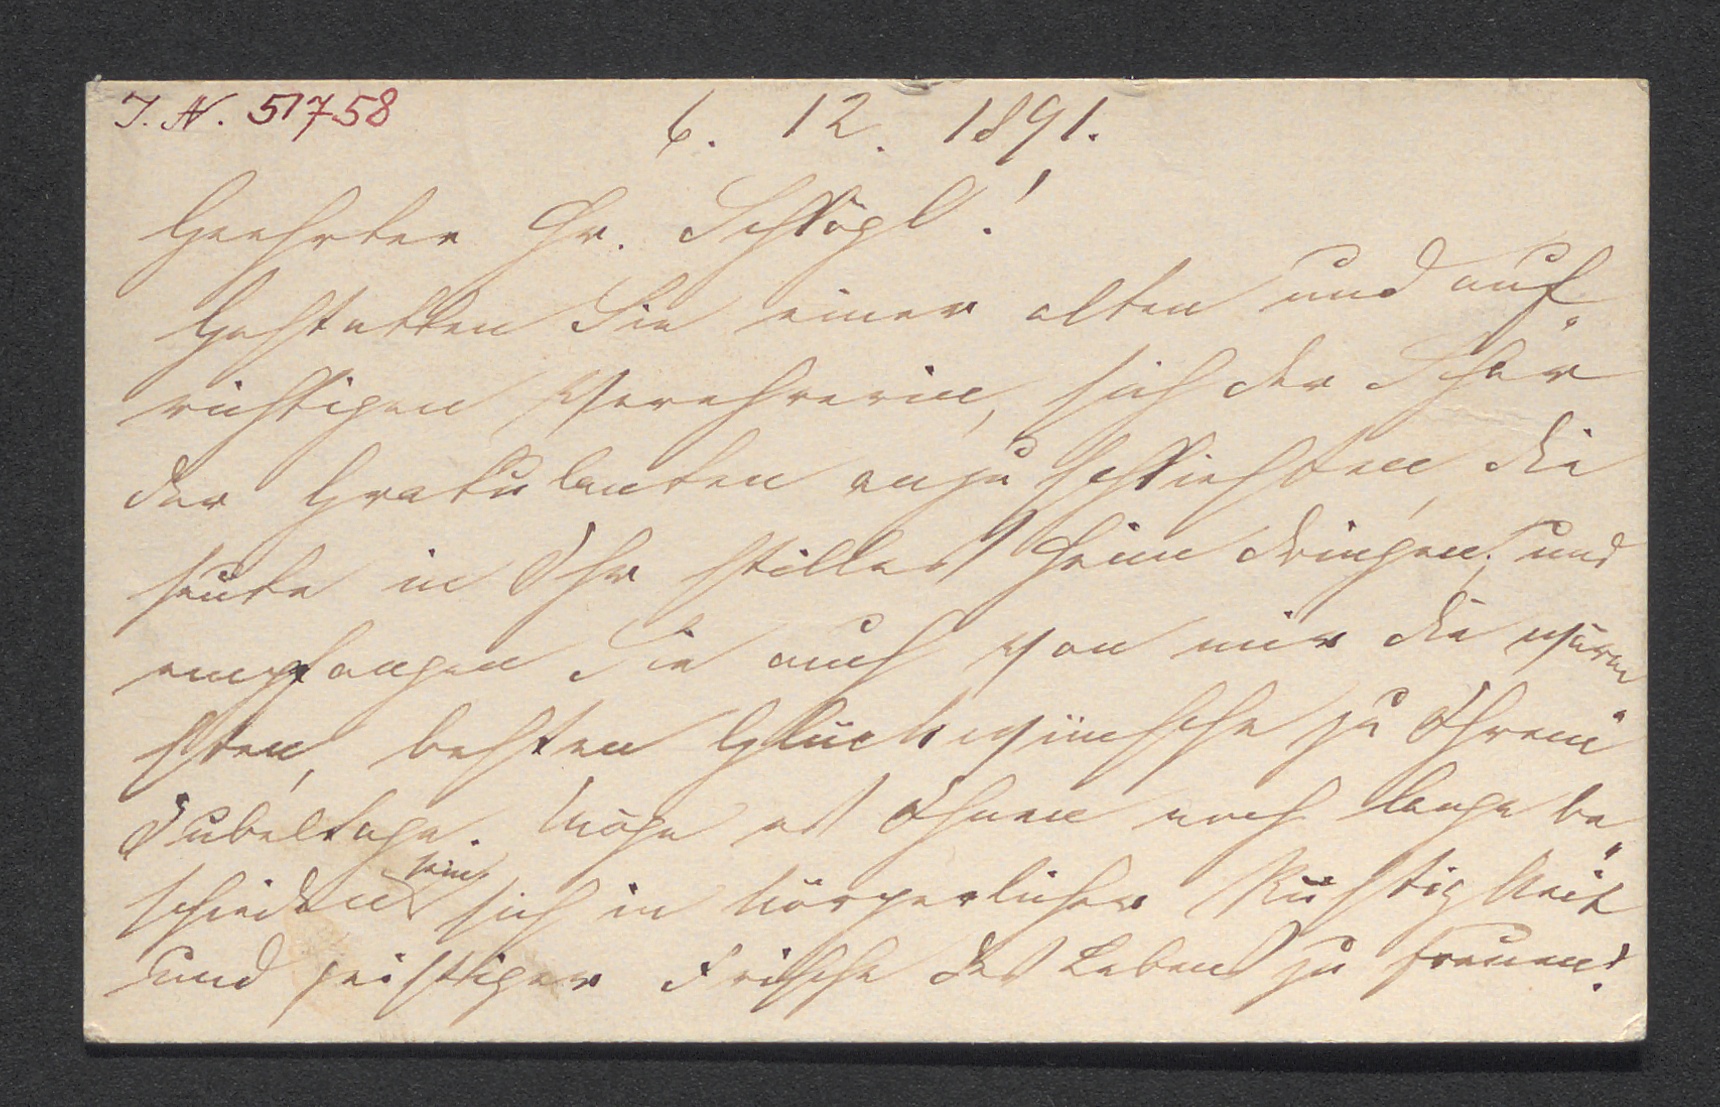 I. N. 51758
6. 12. 1891.
Geehrter Hr. Schlögl!
Gestatten Sie einer alten und auf-
richtigen Verehrerin, sich der Schar
der Gratulanten anzuschließen, die
heute in Ihr stilles Heim dringen, und
empfangen Sie auch von mir die wärm
sten, besten Glückwünsche zu Ihrem
Jubeltage. Möge es Ihnen noch lange be-
schieden sein, sich in körperlicher Rüstigkeit
und geistiger Frische des Lebens zu freuen!